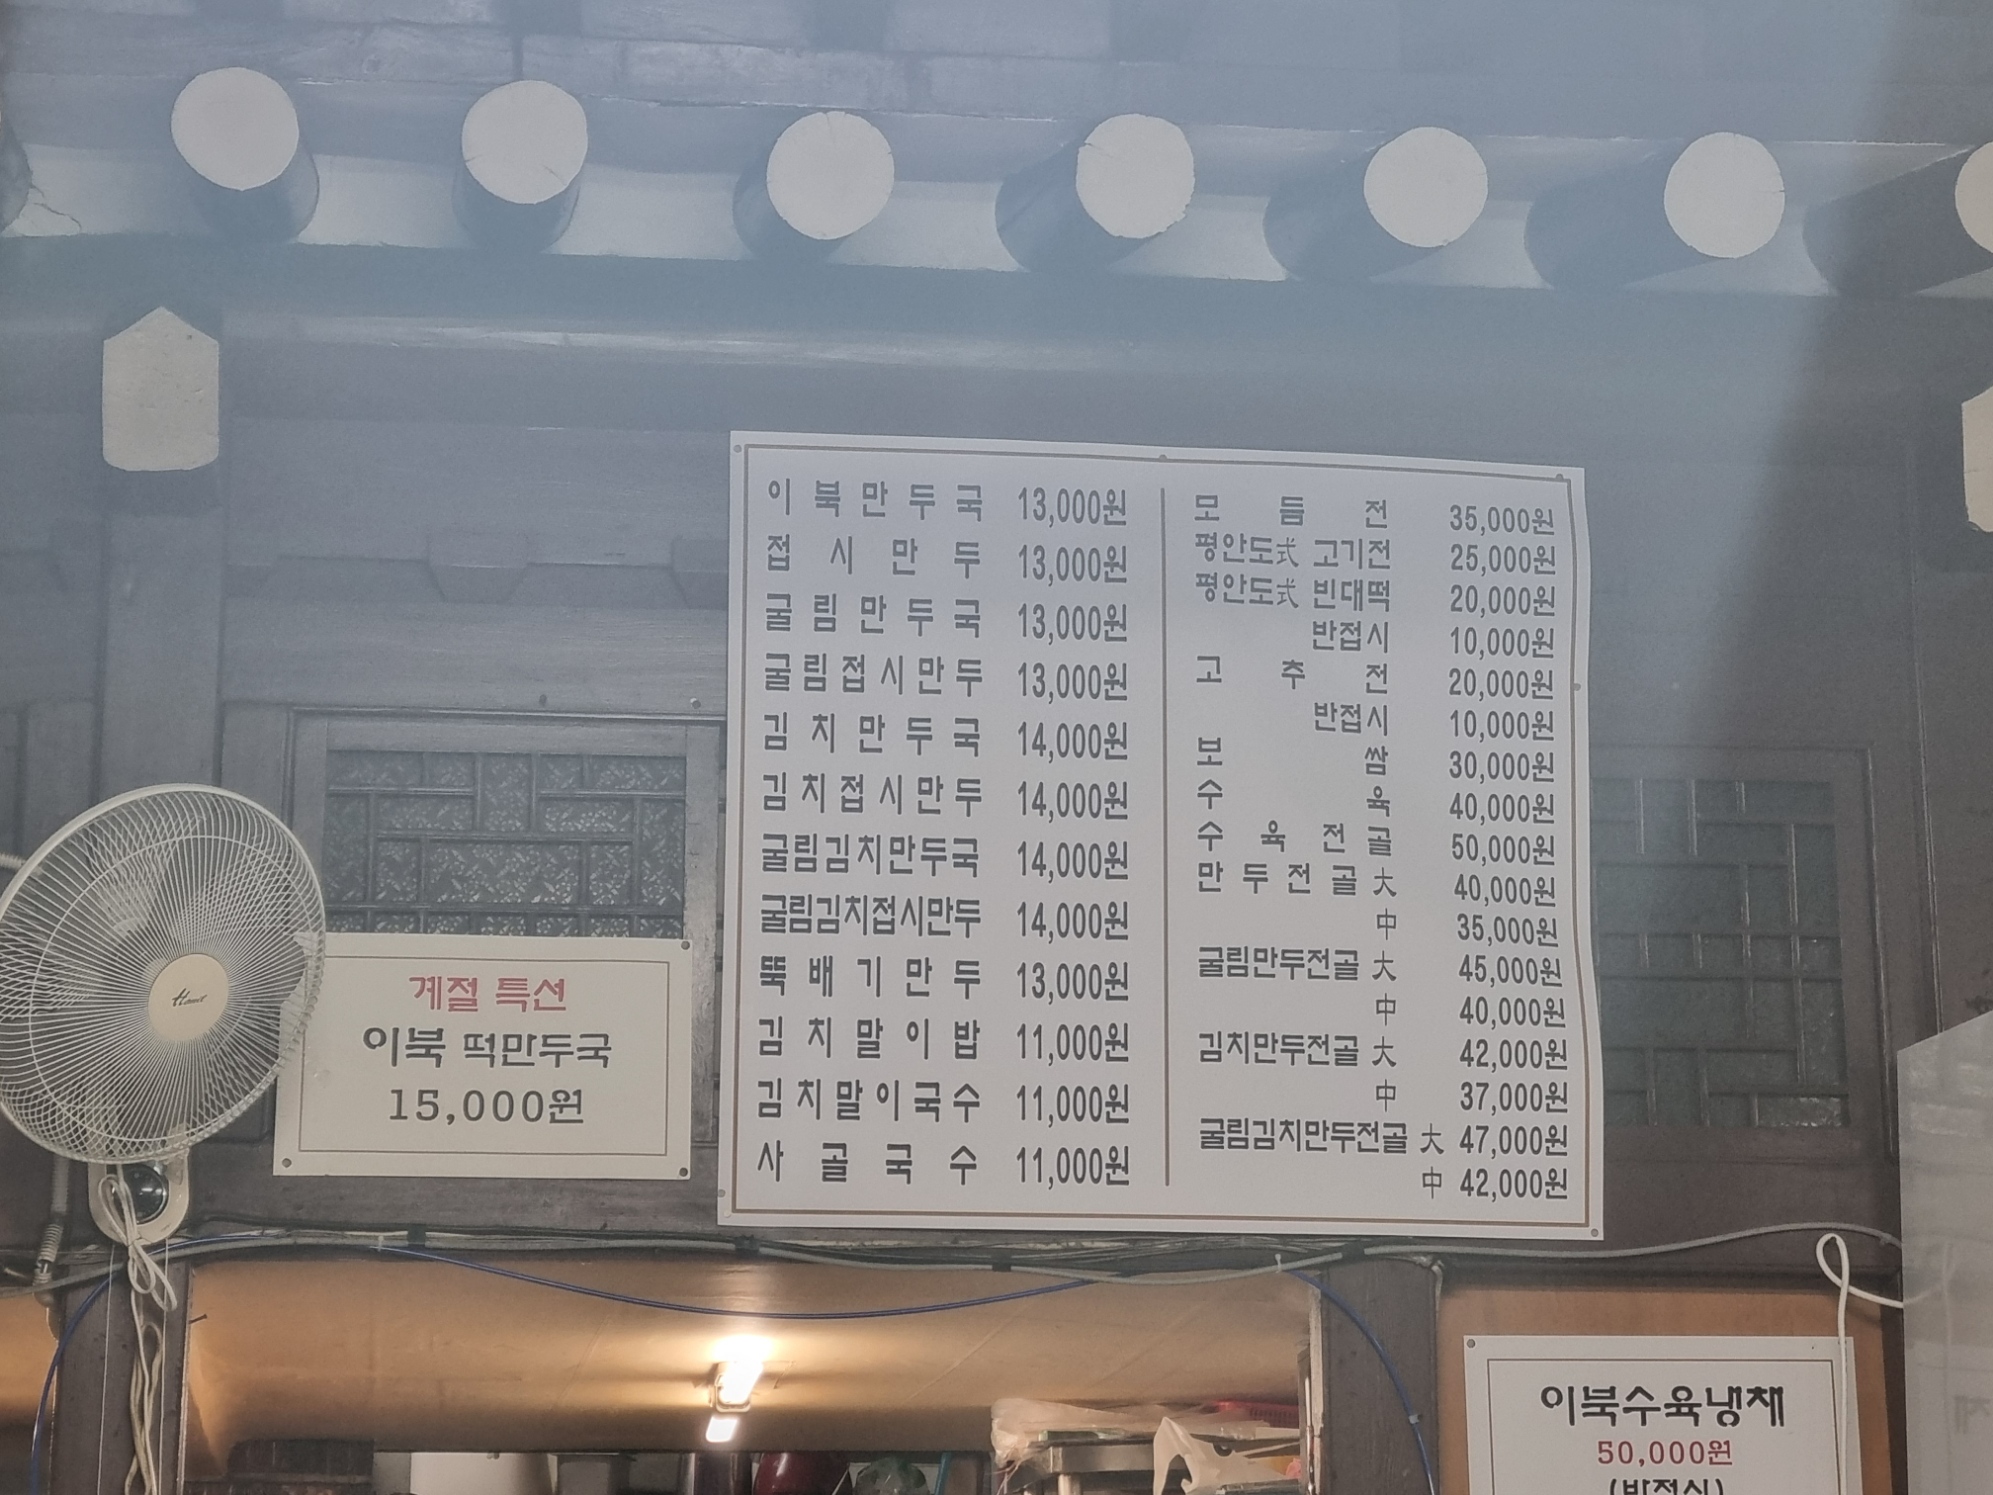 이북만두국 13,000원
접시만두 13,000원
굴림만두국 13,000원
굴림접시만두 13,000원
김치만두국 14,000원
김치접시만두 14,000원
굴림김치만두국 14,000원
굴림김치접시만두 14,000원
뚝배기만두 13,000원
김치말이밥 11,000원
김치말이국수 11,000원
사골국수 11,000원
모듬전 35,000원
평안도式 고기전 25,000원
평안도式 빈대떡 20,000원
반접시 10,000원
고추전 20,000원
반접시 10,000원
보쌈 30,000원
수육 40,000원
수육전골 50,000원
만두전골 大 40,000원
中 35,000원
굴림만두전골 大 45,000원
中 40,000원
김치만두전골 大 42,000원
中 37,000원
굴림김치만두전골 大 47,000원
中 42,000원
계절 특선
이북 떡만두국
15,000원
이북수육냉채
50,000원